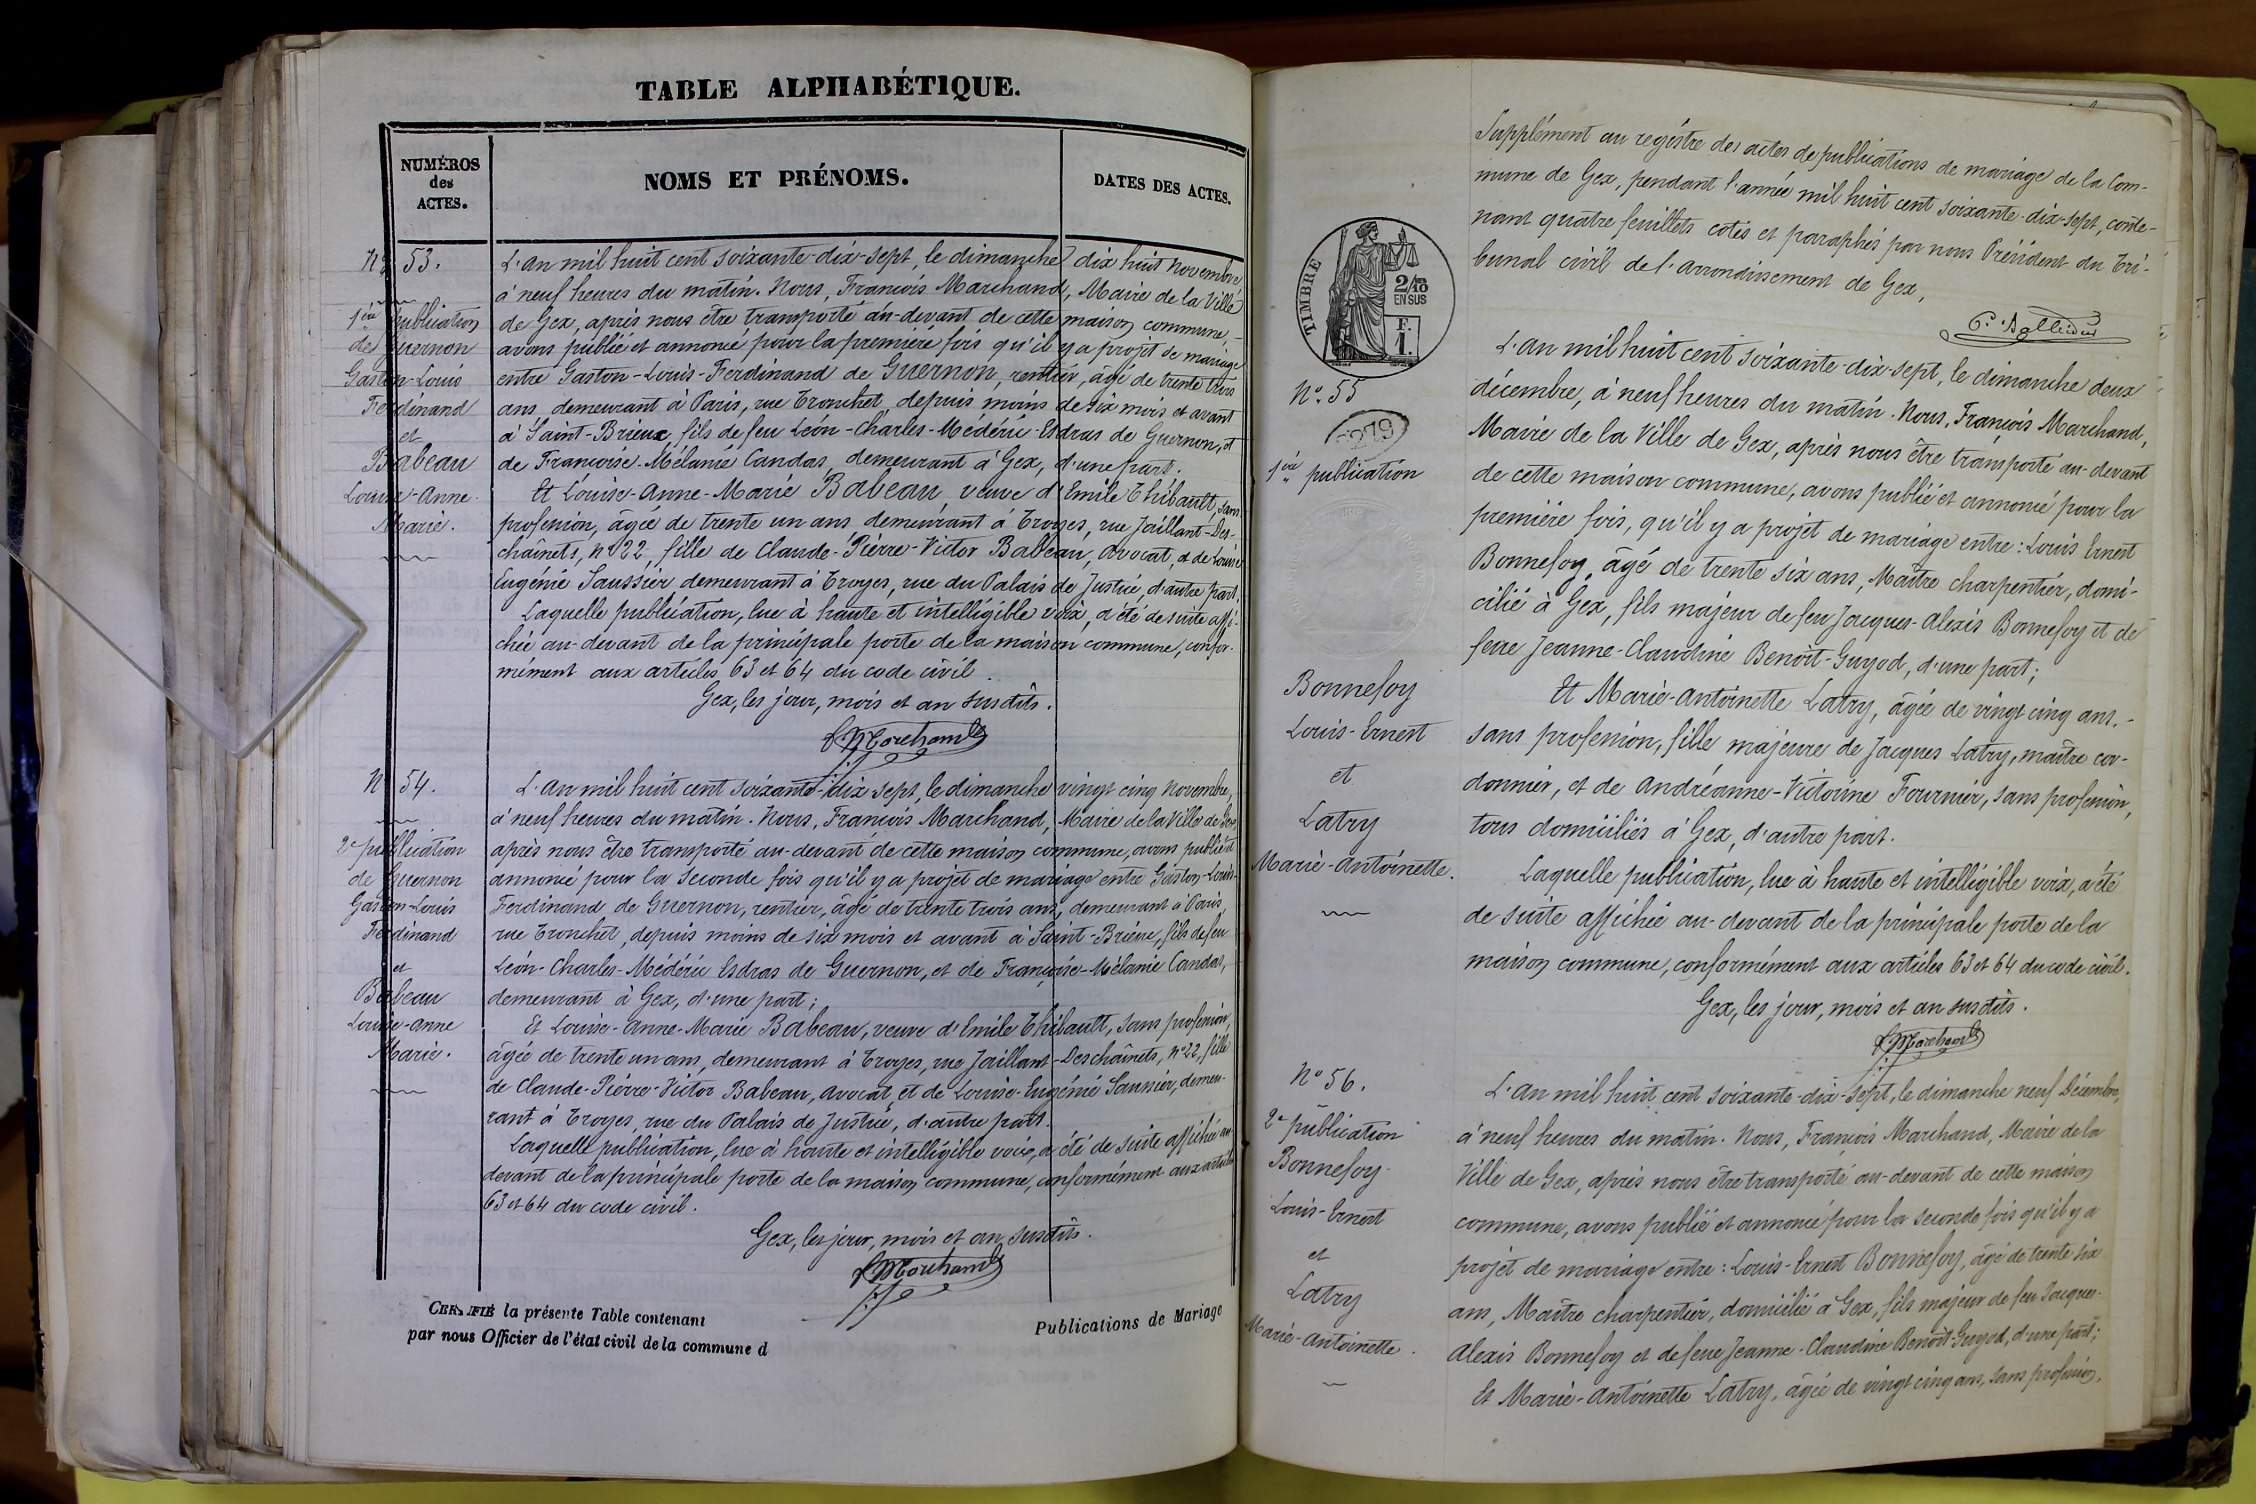 TABLE ALPHABÉTIQUE.
NUMÉROS
des
ACTES.
NOMS ET PRÉNOMS.
DATES DES ACTES.
No 53.
1ère publication
de Guernon
Gaston-Louis
Ferdinand
et
Babeau
Louise-Anne-
Marie.
L'an mil huit cent soixante-dix-sept, le dimanche dix huit novembre
à neuf heures du matin. Nous, François Marchand, Maire de la Ville
de Gex, après nous être transporté au-devant de cette maison commune,
avons publié et annoncé pour la première fois qu'il y a projet de mariage
entre Gaston-Louis-Ferdinand de Guernon, rentier, âgé de trente trois
ans, demeurant à Paris, rue Tronchet, depuis moins de six mois et avant
à Saint-Brieux, fils de feu Léon-Charles-Médéric Esdras de Guernon, et
de Françoise-Mélanie Candas, demeurant à Gex, d'une part.
Et Louise-Anne-Marie Babeau, veuve d'Emile Thibault, sans
profession, âgée de trente un ans demeurant à Troyes, rue Jaillant-Des-
chainets, No 22, fille de Claude-Pierre-Victor Babeau, avocat, et de Louise
Eugénie Saussier demeurant à Troyes, rue du Palais de Justice, d'autre part.
Laquelle publication, lue à haute et intelligible voix, a été de suite affi-
chée au-devant de la principale porte de la maison commune, confor-
mément aux articles 63 et 64 du code civil.
Gex, les jour, mois et an susdits.
F. Marchand
No 54.
2e publication
de Guernon
Gaston-Louis
Ferdinand
et
Babeau
Louise-Anne
Marie.
L'an mil huit cent soixante-dix-sept, le dimanche vingt cinq novembre,
à neuf heures du matin. Nous, François Marchand, Maire de la Ville de Gex,
après nous être transporté au-devant de cette maison commune, avons publié et
annoncé pour la seconde fois qu'il y a projet de mariage entre Gaston-Louis-
Ferdinand de Guernon, rentier, âgé de trente trois ans, demeurant à Paris,
rue Tronchet, depuis moins de six mois et avant à Saint-Brieux, fils de feu
Léon-Charles-Médéric Esdras de Guernon, et de Françoise-Mélanie Candas,
demeurant à Gex, d'une part;
Et Louise-Anne-Marie Babeau, veuve d'Emile Thibault, sans profession,
âgée de trente un ans, demeurant à Troyes, rue Jaillant-Deschainets, No 22, fille
de Claude-Pierre-Victor Babeau, avocat, et de Louise-Eugénie Saussier, demeu-
rant à Troyes, rue du Palais de Justice, d'autre part.
Laquelle publication, lue à haute et intelligible voix, a été de suite affichée au-
devant de la principale porte de la maison commune, conformément aux articles
63 et 64 du code civil.
Gex, les jour, mois et an susdits.
F. Marchand
CERTIFIÉ la présente Table contenant
Publications de Mariage
par nous Officier de l'état civil de la commune d
Supplément au registre des actes de publications de mariage de la Com-
mune de Gex, pendant l'année mil huit cent soixante-dix-sept, conte-
nant quatre feuillets cotés et paraphés par nous Président du Tri-
bunal civil de l'arrondissement de Gex,
TIMBRE
2/10
EN SUS
F.
1.
No 55
1ère publication
Bonnefoy
Louis-Ernest
et
Latry
Marie-Antoinette.
L'an mil huit cent soixante-dix-sept, le dimanche deux
décembre, à neuf heures du matin. Nous, François Marchand,
Maire de la Ville de Gex, après nous être transporté au-devant
de cette maison commune, avons publié et annoncé pour la
première fois, qu'il y a projet de mariage entre: Louis Ernest
Bonnefoy, âgé de trente six ans, Maître charpentier, domi-
cilié à Gex, fils majeur de feu Jacques-Alexis Bonnefoy et de
feue Jeanne-Claudine Benoît-Guyod, d'une part;
Et Marie-Antoinette Latry, âgée de vingt cinq ans,
sans profession, fille majeure de Jacques Latry, maître cor-
donnier, et de Andréanne-Victorine Fournier, sans profession,
tous domiciliés à Gex, d'autre part.
Laquelle publication, lue à haute et intelligible voix, a été
de suite affichée au-devant de la principale porte de la
maison commune, conformément aux articles 63 et 64 du code civil.
Gex, les jour, mois et an susdits.
F. Marchand
No 56.
2e publication
Bonnefoy
Louis-Ernest
et
Latry
Marie-Antoinette.
L'an mil huit cent soixante-dix-sept, le dimanche neuf Décembre,
à neuf heures du matin. Nous, François Marchand, Maire de la
Ville de Gex, après nous être transporté au-devant de cette maison
commune, avons publié et annoncé pour la seconde fois qu'il y a
projet de mariage entre: Louis-Ernest Bonnefoy, âgé de trente six
ans, Maître charpentier, domicilié à Gex, fils majeur de feu Jacques-
Alexis Bonnefoy et de feue Jeanne-Claudine Benoît-Guyod, d'une part;
Et Marie-Antoinette Latry, âgée de vingt cinq ans, sans profession,